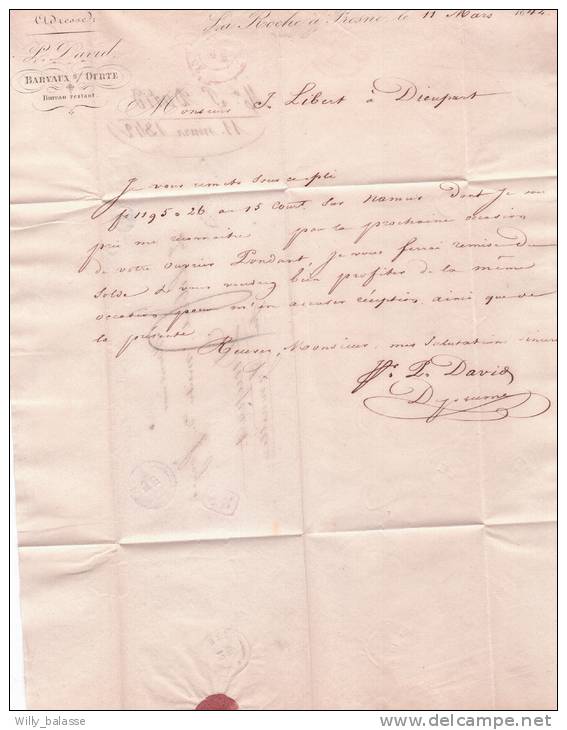 Adresse:
P. David.
BARVAUX S/ OURTE
Bureau restant.
La Roche à Fresne le 11 Mars 184
Monsieur J. Libert à Dieupart
Je vous remets sous ce pli
f 1195=26 au 15 Court Sur namur Dont Je vous
prie me reconnaitre par la prochaine occasion
de votre ouvrier Pondant, Je vous ferrai remise du
Solde & vous voudrez bien profiter de la même
occation pour m'en accuser réception, ainsi que de
la présente
Recever, Monsieur, mes Salutation
P. David
Willy_balasse
delcampe.net